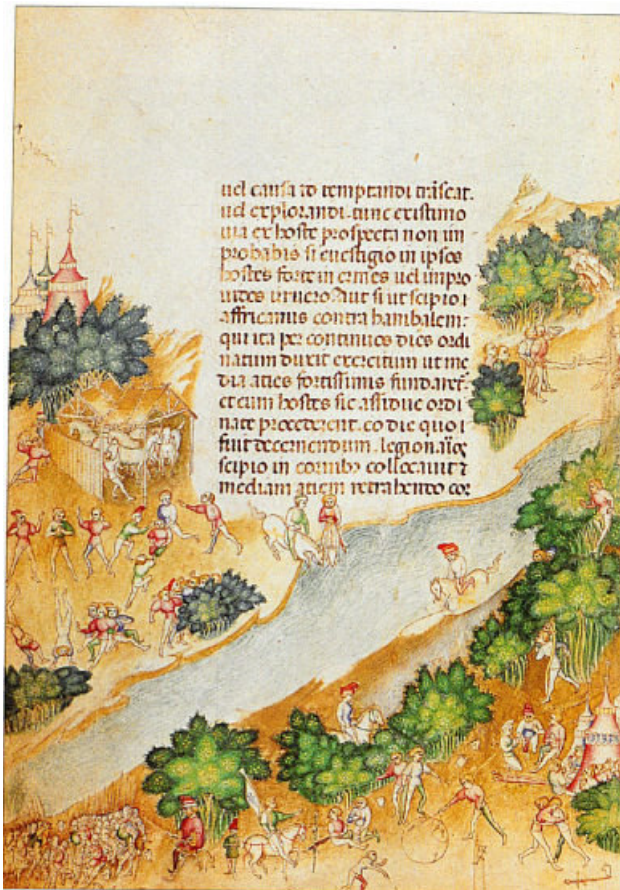 uel causa ro temptandi trãseat.
uel explorandi. tunc existimo
uia ex hoste prospecta non im
probabis si euestigio in ipsos
hostes forte in ermes uel impro
uitos irruero. Aut si ut scipio i
affricanus contra hanibalem:
qui ita per continuos dies ordi
natum duxit exercitum ut me
dia acies fortissimis fundaret̃.
et cum hostes sic assidue ordi
nate procederent. eo die quo i
fuit decernendum. legionarios
scipio in cornibꝫ collocauit ⁊
mediam aciem retrahendo cor